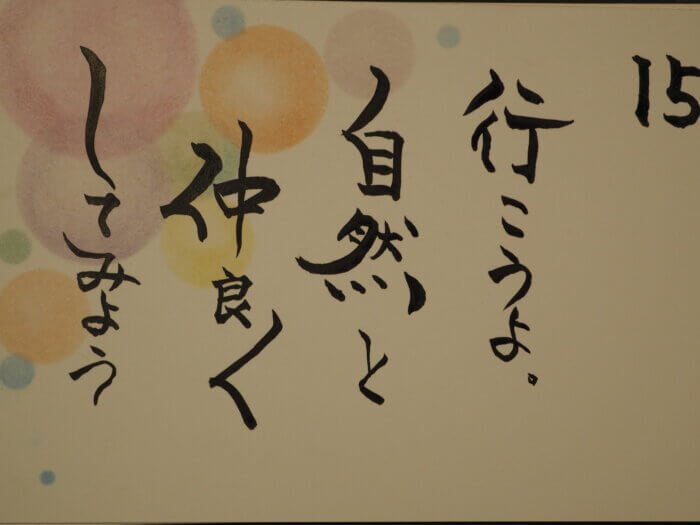 15
行こうよ。
自然と
仲良く
してみよう